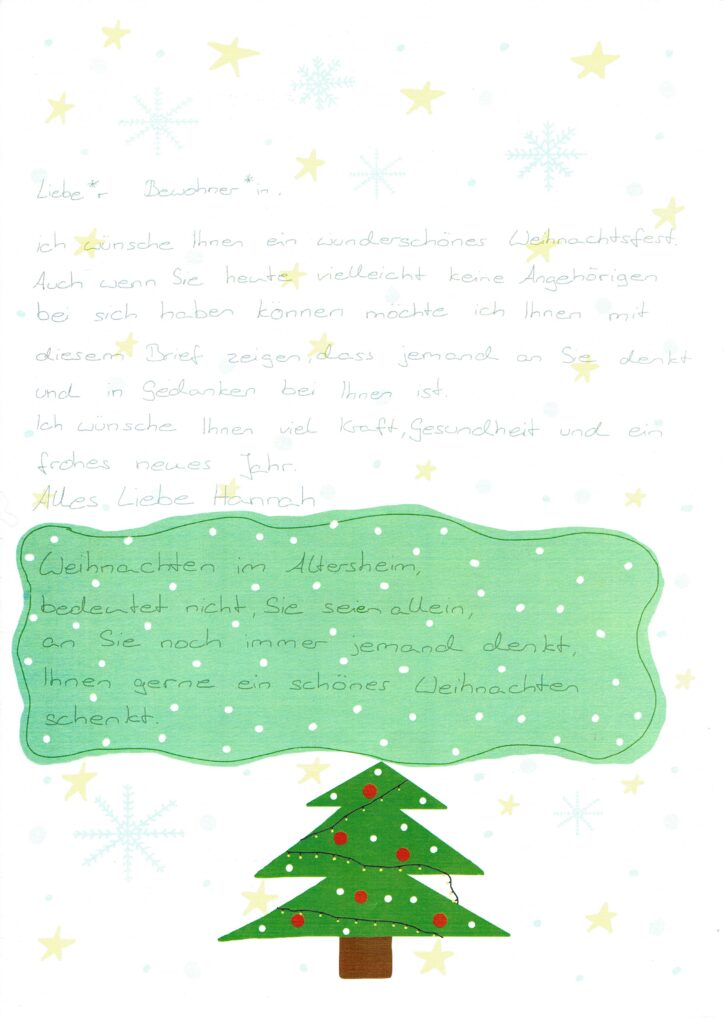 Liebe*r Bewohner*in.
ich wünsche Ihnen ein wunderschönes Weihnachtsfest.
Auch wenn Sie heute vielleicht keine Angehörigen
bei sich haben können möchte ich Ihnen mit
diesem Brief zeigen, dass jemand an Sie denkt
und in Gedanken bei Ihnen ist.
Ich wünsche Ihnen viel Kraft, Gesundheit und ein
frohes neues Jahr.
Alles Liebe Hannah
Weihnachten im Altersheim,
bedeutet nicht, Sie seien allein,
an Sie noch immer jemand denkt,
Ihnen gerne ein schönes Weihnachten
schenkt.